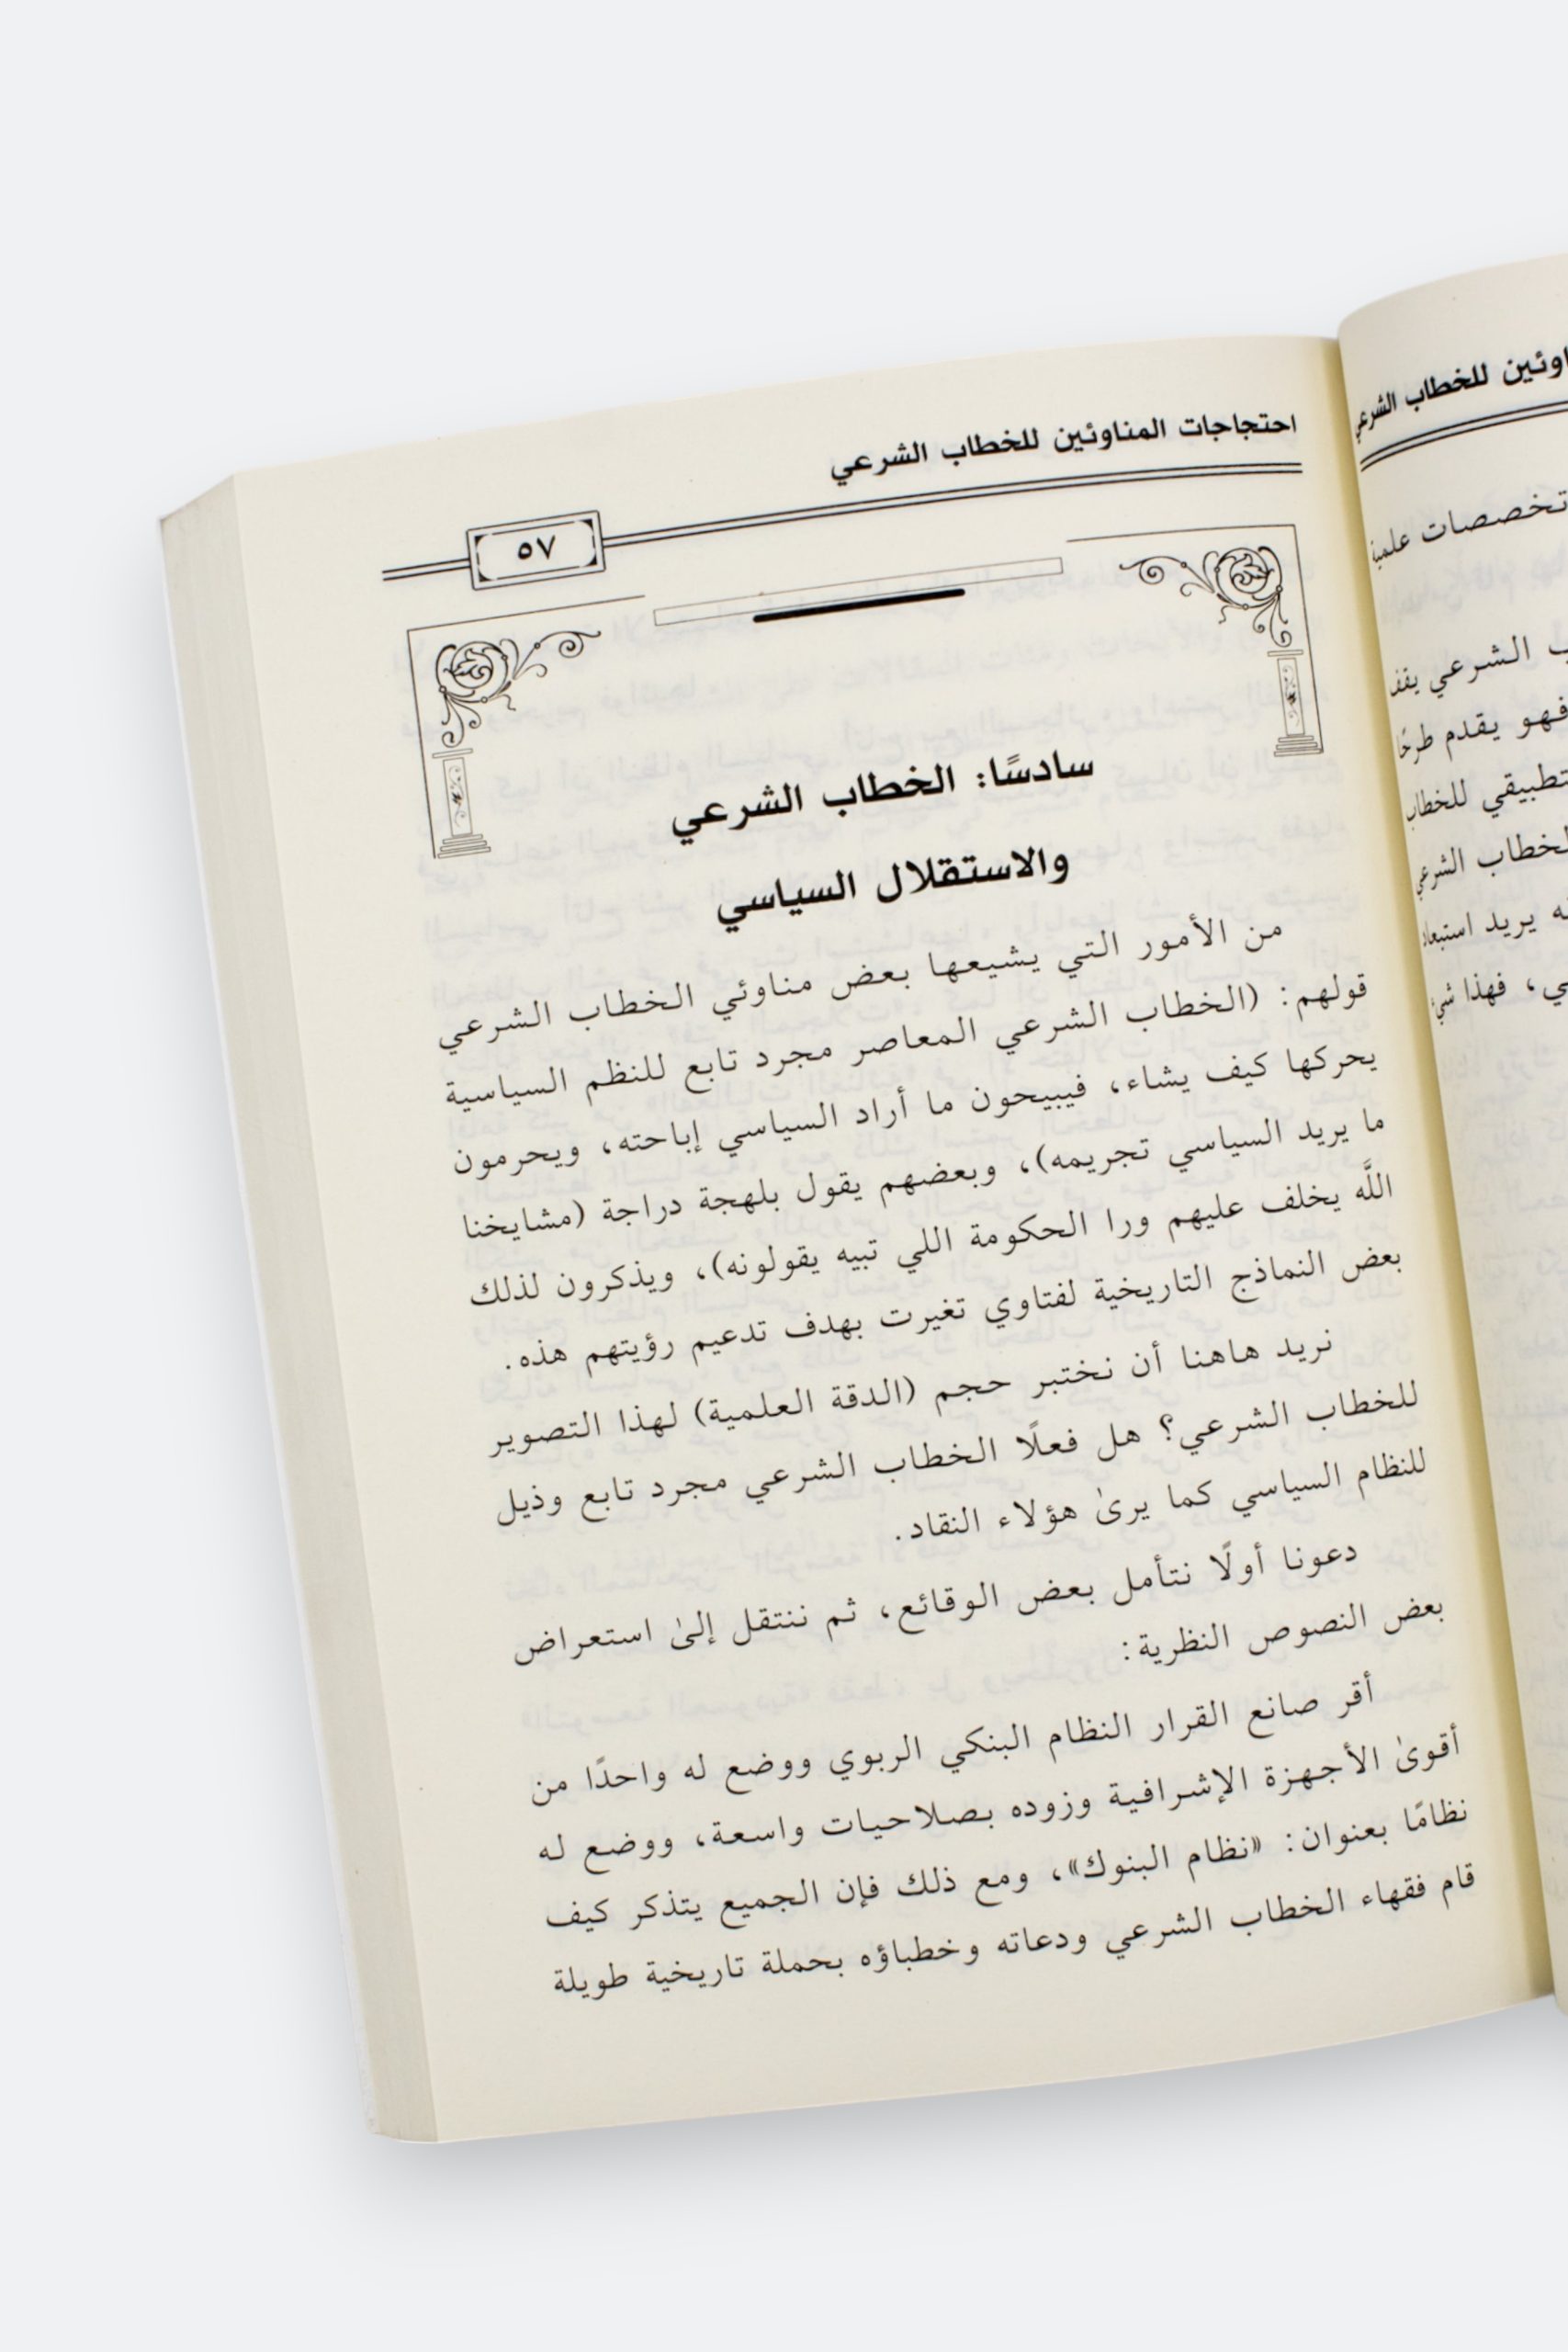 احتجاجات المناوئين للخطاب الشرعي
٥٧
سادسًا: الخطاب الشرعي
والاستقلال السياسي
من الأمور التي يشيعها بعض مناوئي الخطاب الشرعي
قولهم: (الخطاب الشرعي المعاصر مجرد تابع للنظم السياسية
يحركها كيف يشاء، فيبيحون ما أراد السياسي إباحته، ويحرمون
ما يريد السياسي تجريمه)، وبعضهم يقول بلهجة دراجة (مشايخنا
اللَّه يخلف عليهم ورا الحكومة اللي تبيه يقولونه)، ويذكرون لذلك
بعض النماذج التاريخية لفتاوي تغيرت بهدف تدعيم رؤيتهم هذه.
نريد هاهنا أن نختبر حجم (الدقة العلمية) لهذا التصوير
للخطاب الشرعي؟ هل فعلًا الخطاب الشرعي مجرد تابع وذيل
للنظام السياسي كما يرىٰ هؤلاء النقاد.
دعونا أولًا نتأمل بعض الوقائع، ثم ننتقل إلىٰ استعراض
بعض النصوص النظرية:
أقر صانع القرار النظام البنكي الربوي ووضع له واحدًا من
أقوىٰ الأجهزة الإشرافية وزوده بصلاحيات واسعة، ووضع له
نظامًا بعنوان: «نظام البنوك»، ومع ذلك فإن الجميع يتذكر كيف
قام فقهاء الخطاب الشرعي ودعاته وخطباؤه بحملة تاريخية طويلة
للخطاب الشرعي
تخصصات علمية
الشرعي يقف
فهو يقدم طرحًا
للخطاب
الشرعي
يريد استبعاد
، فهذا شيء